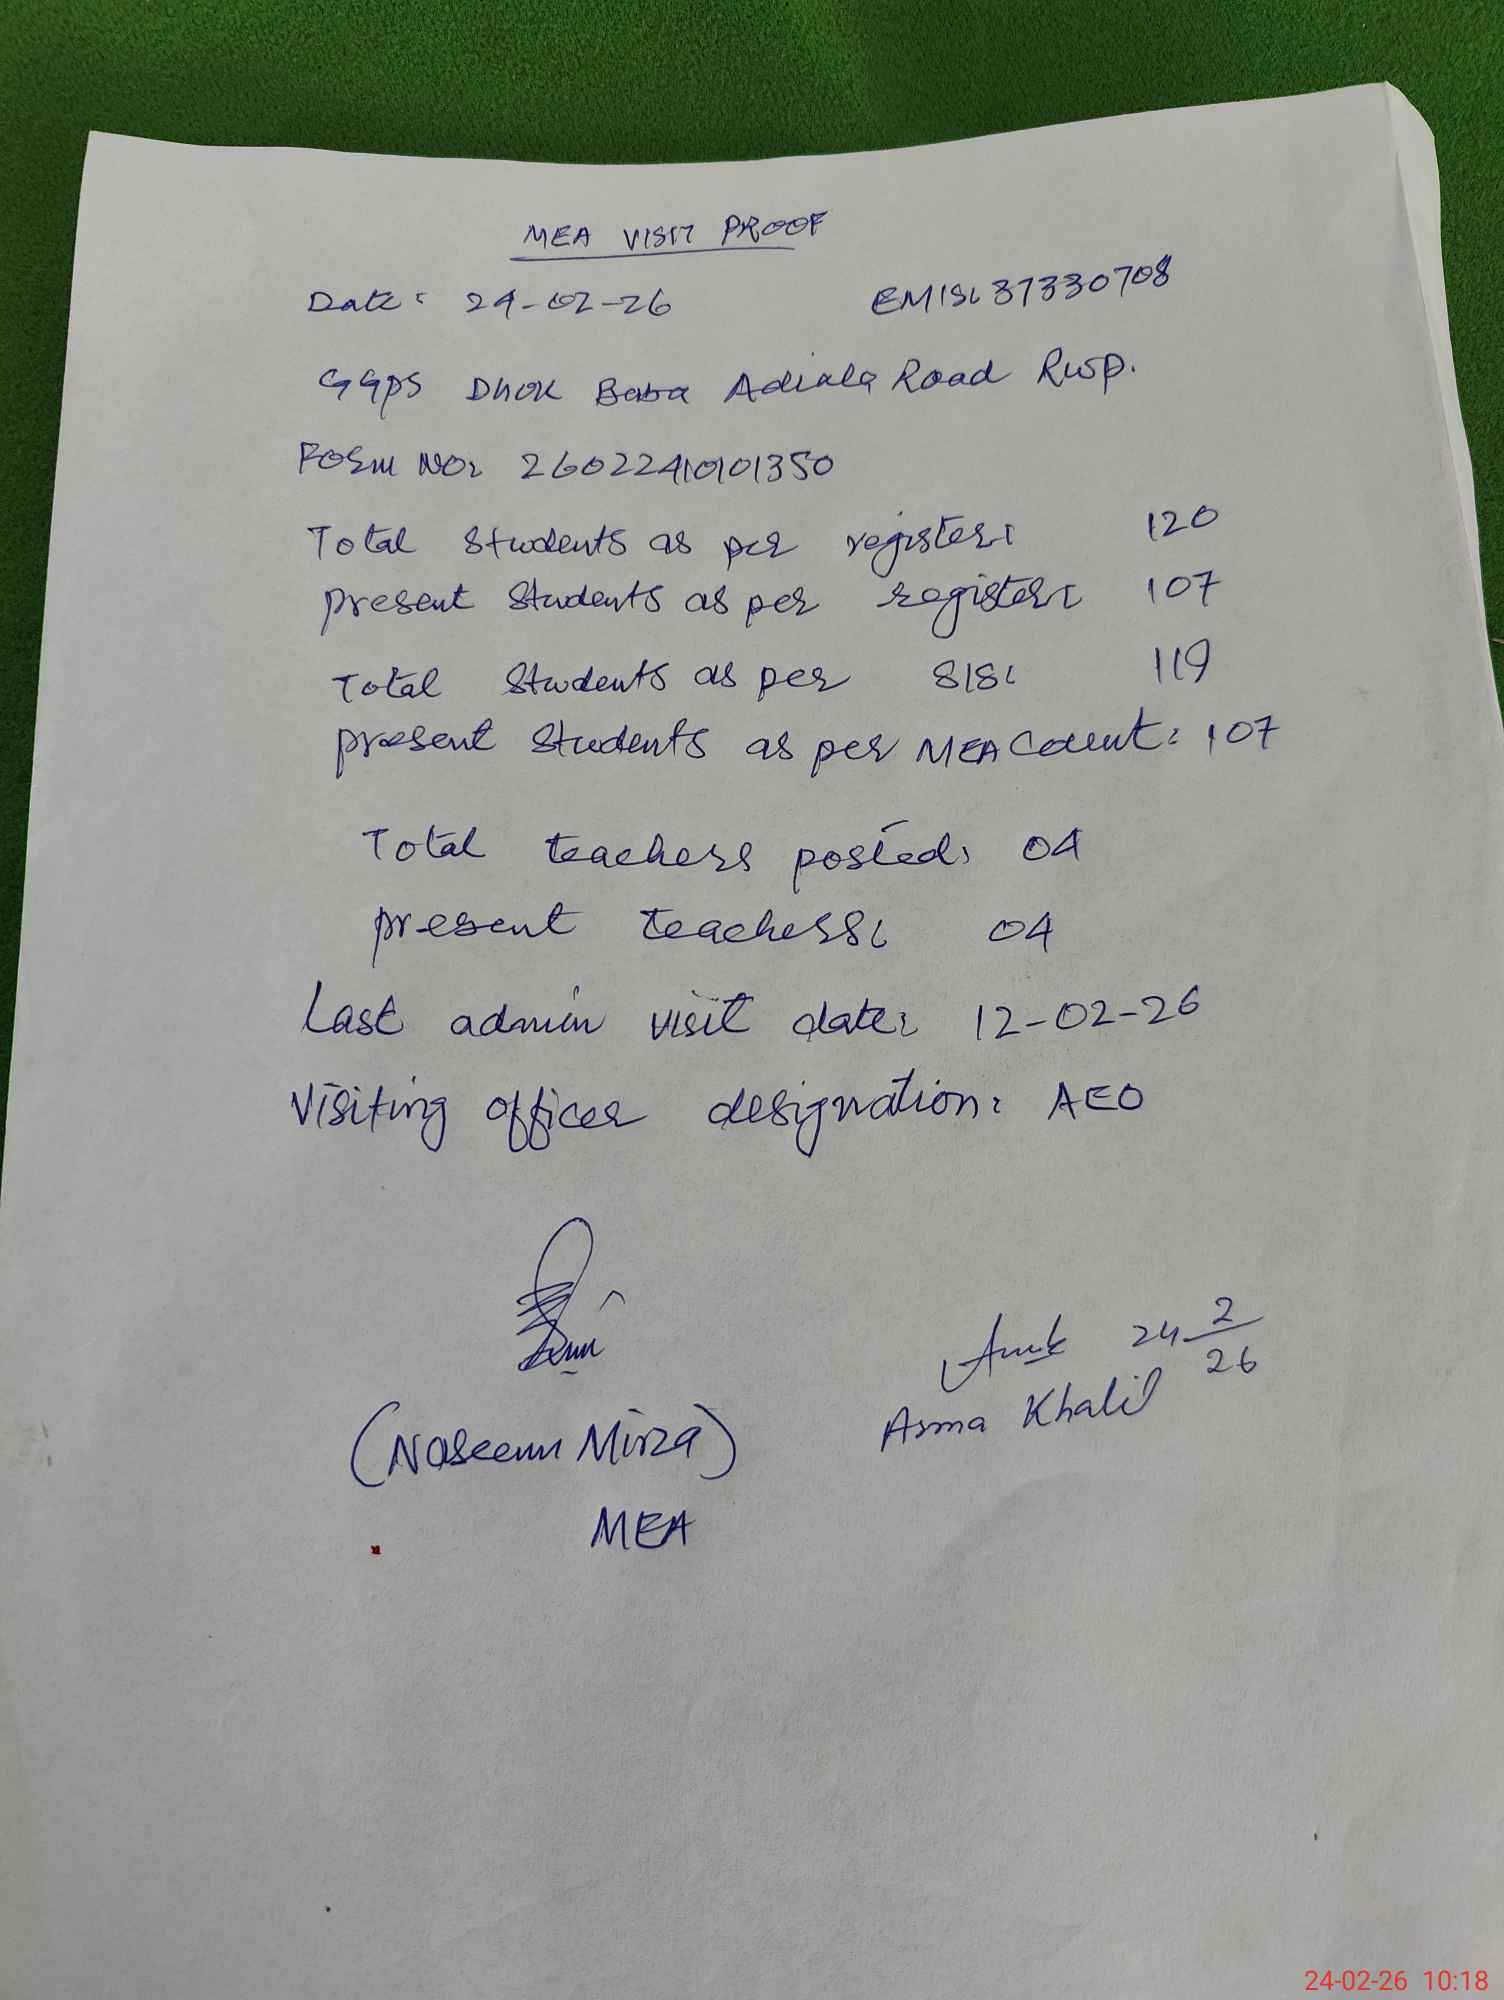 MEA VISIT PROOF
Date: 24-02-26 EMIS: 37330708
GGPS DHOK Baba Adiala Road Rwp.
Form No: 26022410101350
Total Students as per register: 120
present Students as per register: 107
Total Students as per SIS: 119
present Students as per MEA Count: 107
Total teachers posted: 04
present teachers: 04
Last admin visit date: 12-02-26
Visiting officer designation: AEO
24 2/26
(Naseem Mirza) Asma Khalil
MEA
24-02-26 10:18